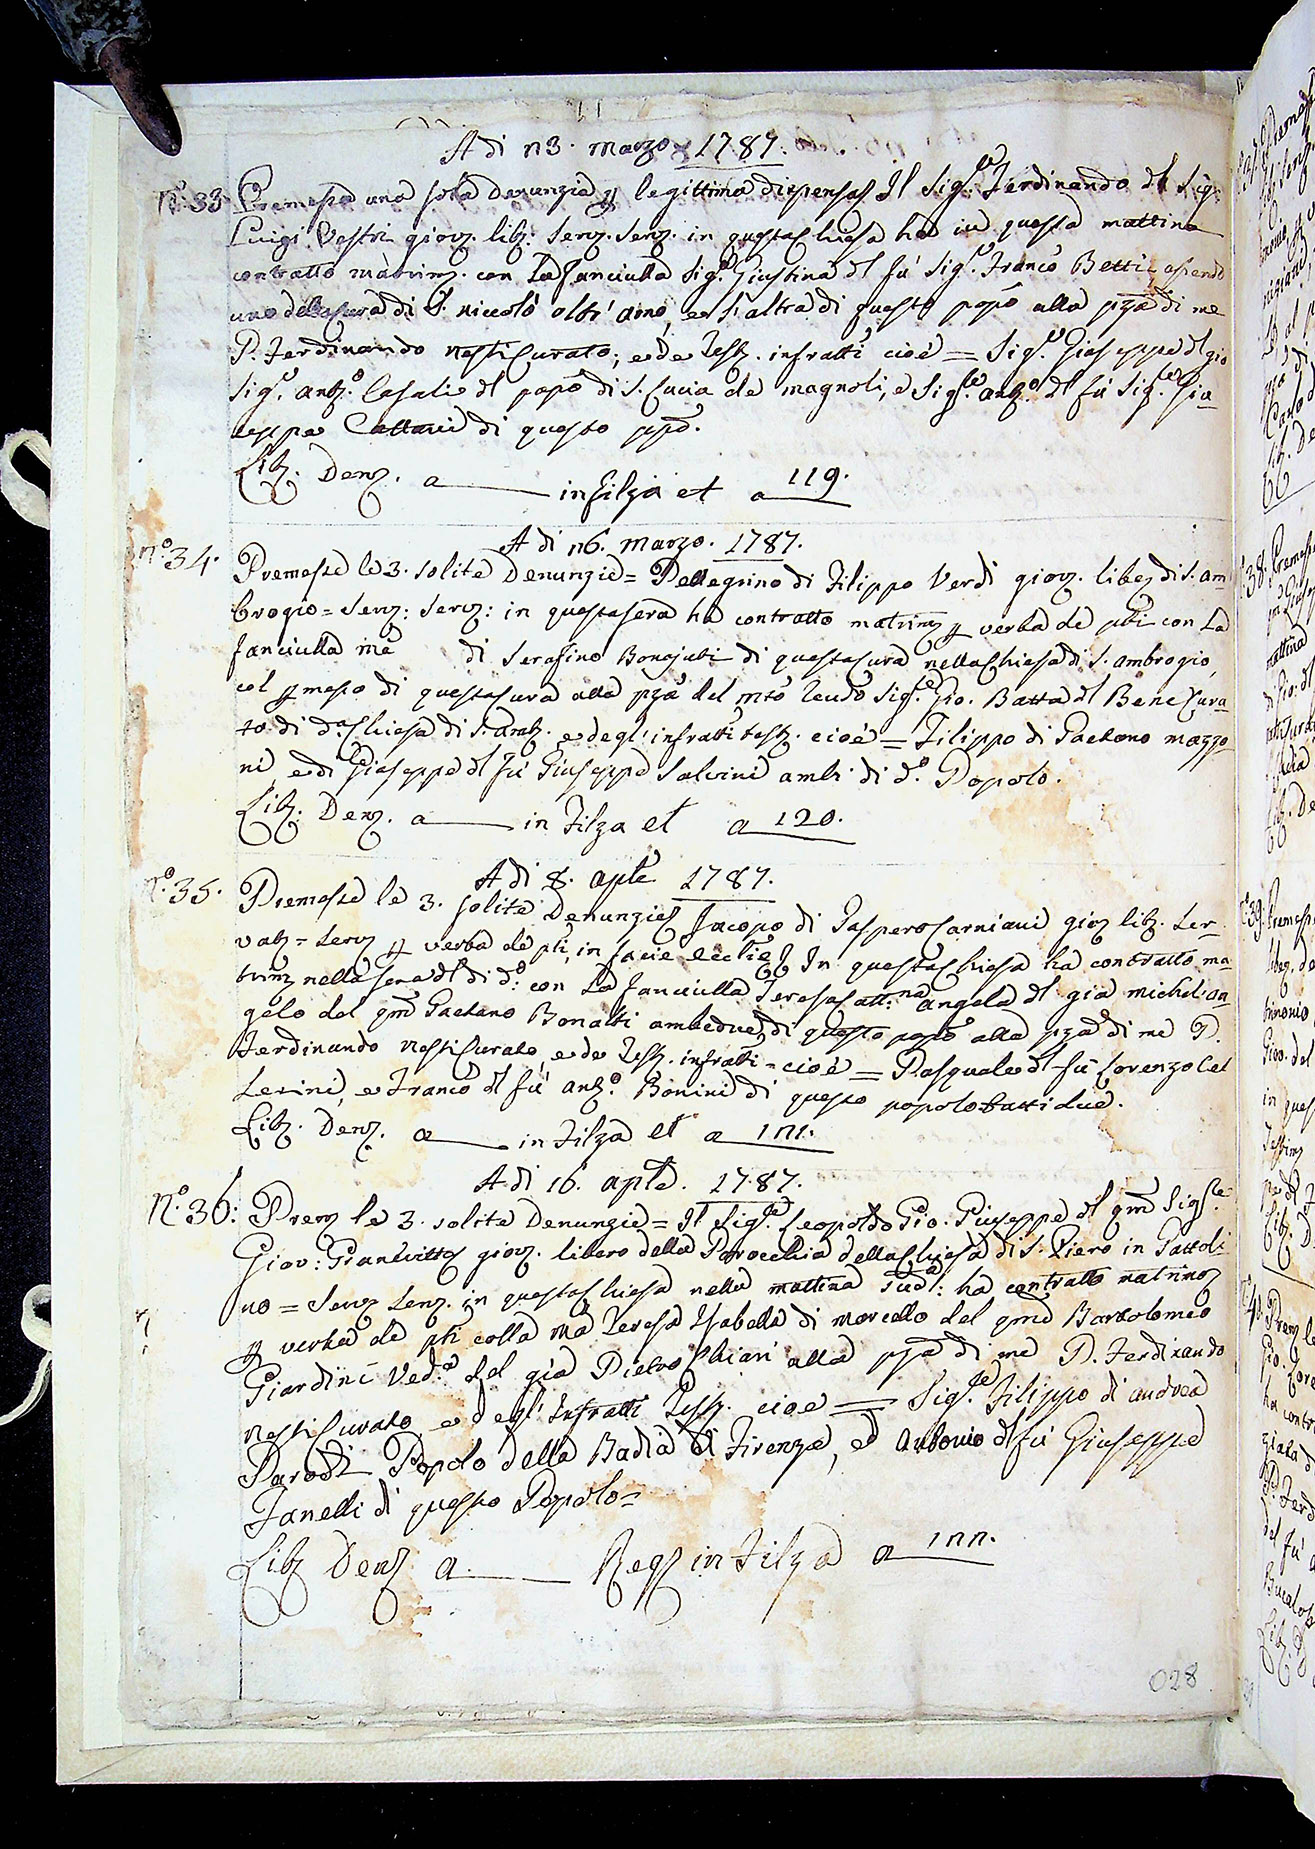 A di 23. marzo 1787.
N.° 33 Premessa una sola Denunzia p legittima dispensa Il Sig.re Ferdinando del Sig.
Luigi Vestri giov. lib. Serv. Serv. in questa Chiesa ha in questa mattina
contratto matrim. con La fanciulla Sig.a Giustina del fù Sig.e Franco Betti essendo
uno della Cura di S. niccolò oltr'arno, e l'altra di questo popo alla pza di me
P. Ferdinando nesti Curato; e de Test. infratti cioè = Sig.e Giuseppe del gio
Sig.e Ant.o Casali del popo di S. Lucia de magnoli, e Sig.re Ant.o del fù Sig.re Giu-
seppe Cattani di questo ppo.
Lib. Den. a in filza et a 119.
A di 26. Marzo. 1787.
N.° 34. Premesse le 3. solite Denunzie = Pellegrino di Filippo Verdi giov. libe di S. am-
brogio = Serv: Serv: in questa sera ha contratto matrim p verba de pti con La
fanciulla me di Serafino Bonajuti di questa Cura nella Chiesa di S. ambrogio,
col pmesso di questa Cura alla pza del mto Revdo Sig.e Gio. Batta del Bene Cura-
to di d.a Chiesa di S. amb. e degl'infratti test. cioè = Filippo di Gaetano mazzo-
ni e di Giuseppe del fù Giuseppe Salvini ambi di d.o Popolo.
Lib. Den. a in Filza et a 120.
A di 8. aple 1787.
N.° 35. Premesse le 3. solite Denunzie Jacopo di Gaspero Carniani giov lib. Ser-
vatz = Serv p verba de pti, in facie Ecctie In questa Chiesa ha contratto ma-
trim nella sera del di d.o con La fanciulla Teresa Catt.na Angela del già Michel an-
gelo del qm Gaetano Bonatti ambedue di questo popo alla pza di me P.
Ferdinando nesti Curato, e de Test. infratti = cioè = Pasquale del fù Lorenzo Cel
Lerini, e Franco del fù ant.o Bonini di questo popolo tutti due.
Lib. Den. a in Filza et a 121.
A di 16. aple. 1787.
N.° 36: Prem le 3. solite Denunzie = Il Sig.re Leopoldo Gio. Giuseppe del qm Sig.re
Giov: Gianvitti giov. libero della Parocchia della Chiesa di S. Piero in Gattoli-
no = Serv Serv. in questa Chiesa nella mattina sud.a: ha contratto matrimo
p verba de pti colla ma Teresa Isabella di Marcello del qm Bartolomeo
Giardini Ved.a del già Pietro Chiari alla pza di me P. Ferdinando
nesti Curato e degl'Infratti Test. cioe = Sig.re Filippo di andrea
Parodi Popolo della Badia di Firenze, e Antonio del fù Giuseppe
Fanelli di questo Popolo =
Lib Den a Reg in Filza a 122.
028